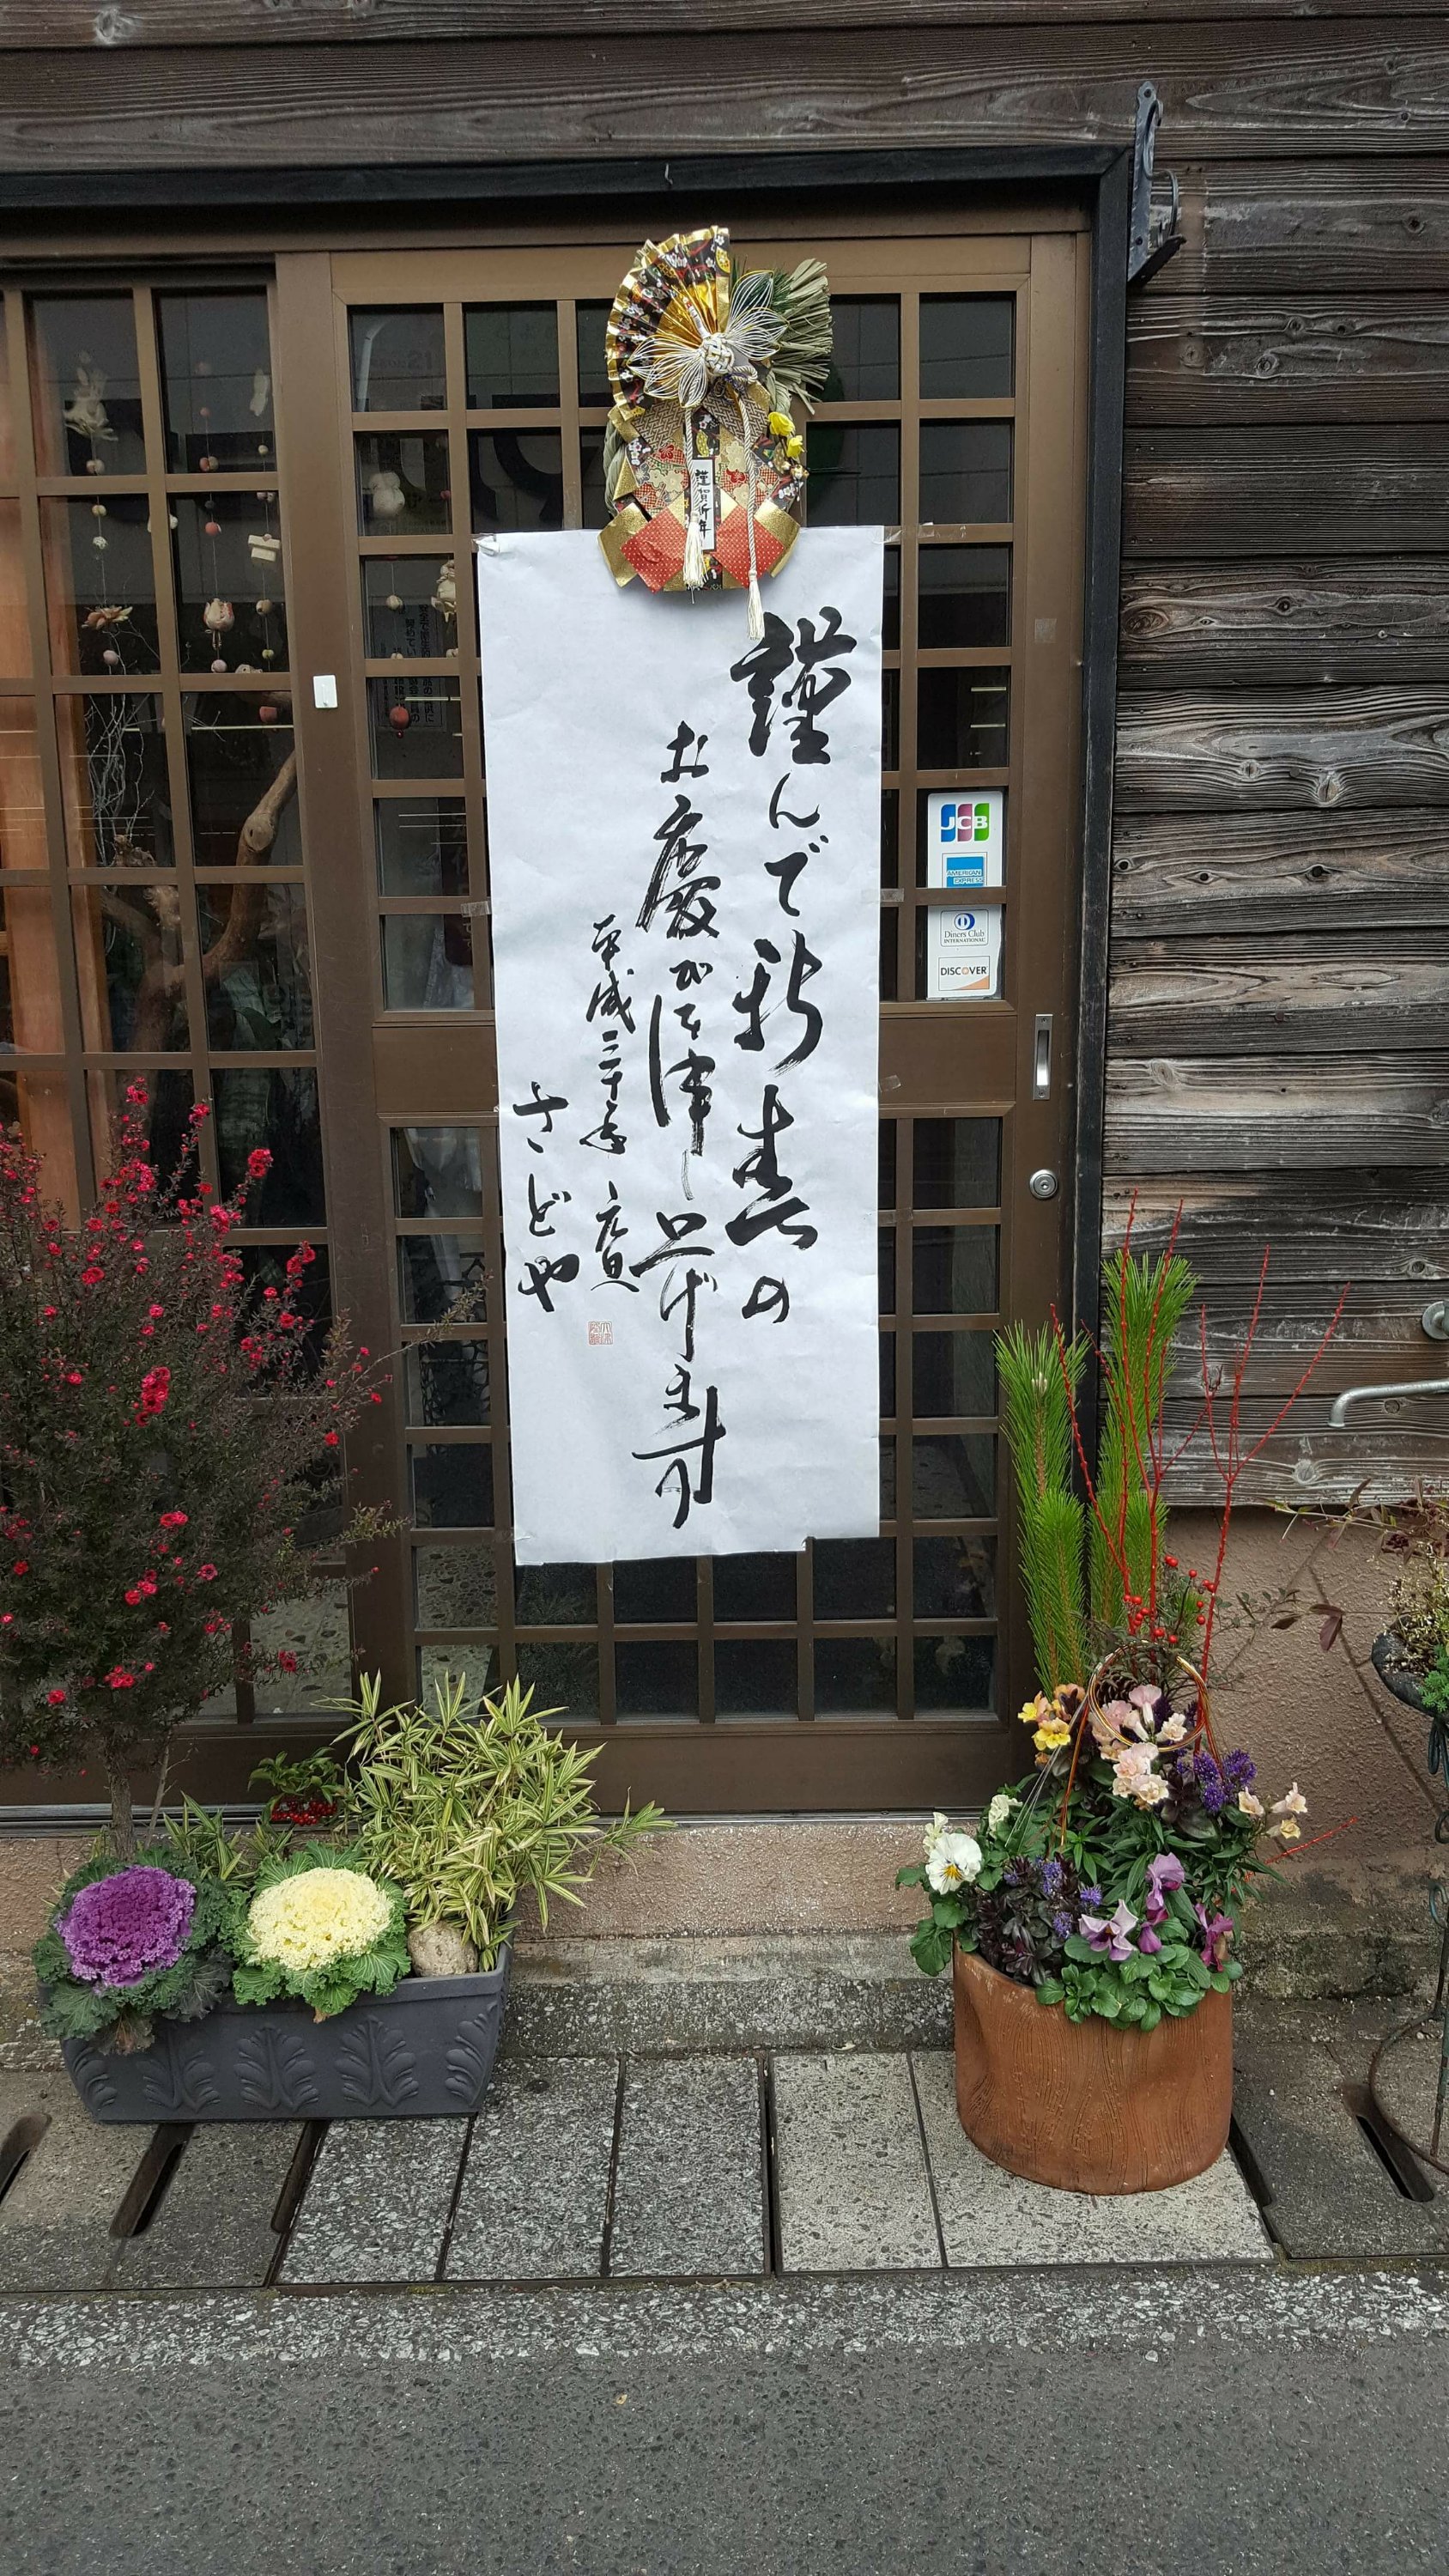 謹賀新年
謹んで新春の
お慶びを申し上げます
平成三十年 元旦
さどや
JCB
AMERICAN
EXPRESS
Diners Club
INTERNATIONAL
DISCOVER